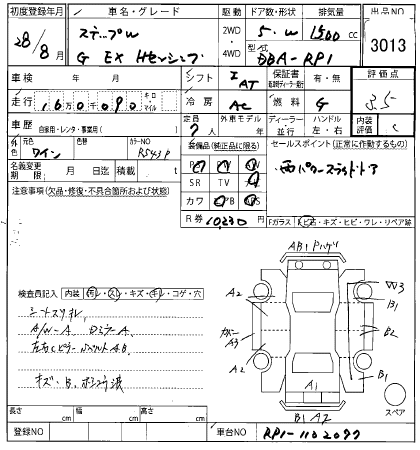 初度登録年月 車名・グレード 駆動 ドア数・形状 排気量 出品NO
28/8月 ステップW 2WD 5・W 1500cc 3013
G EX Hセンシング ・4WD 型式 DBA-RP1
車検 年 月 シフト IAT 保証書 有・無 評価点
走行 160090 キロ・マイル 冷房 AC 燃料 G 3.5
車歴 自家用・レンタ・事業用( ) 定員 7人 外車モデル年 ディーラー・並行 ハンドル 左・右 内装評価 C
外色 元色 ワイン 色替 カラーNO R543P 装備品(純正品に限る) セールスポイント(正常に作動するもの)
名義変更期限 月 日迄 積載 t PS PW
両パワースライドドア
注意事項(欠品・修復・不具合箇所および状態) SR TV
カワ
R券 10230円 Fガラス・キズ・ヒビ・ワレ・リペア跡
AB1
検査員記入 内装(汚レ・スレ・キズ・キレ・コゲ・穴)
A2 W3
B1
シートスリキレ
A/W-A DミラーA
A3 B2
左右Cピラー
A2 B1
A1
キズ・B
スペア
B1 A2
長さ cm 幅 cm 高さ cm
登録NO 車台NO RP1-1102077